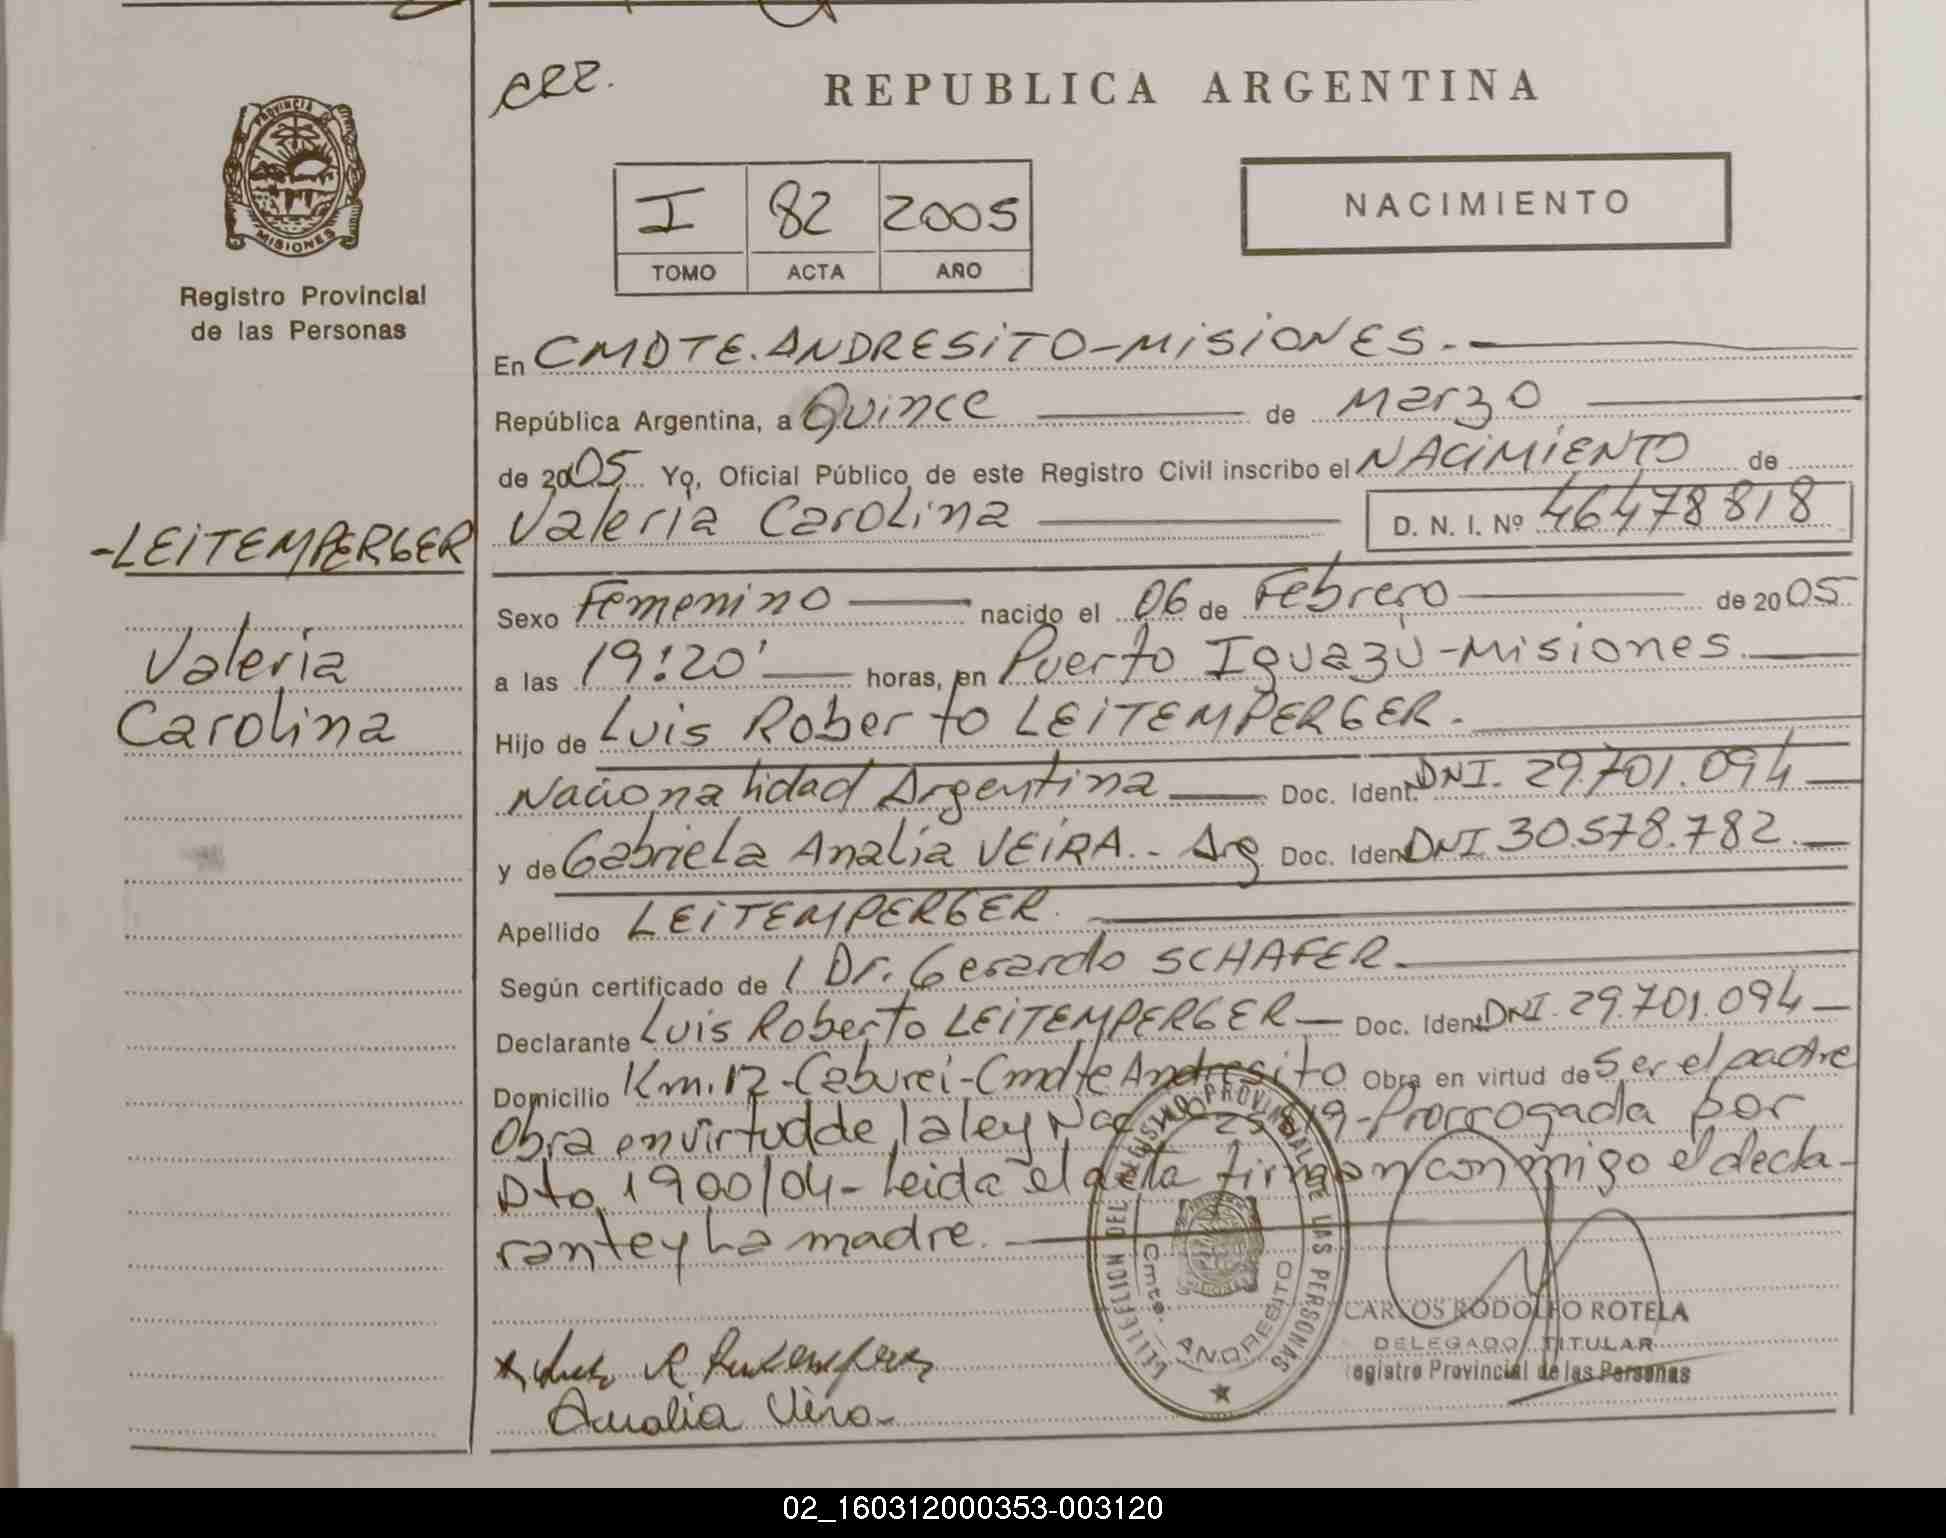 CRR.
REPUBLICA ARGENTINA
PROVINCIA DE
MISIONES
Registro Provincial
de las Personas
I 82 2005
TOMO ACTA AÑO
NACIMIENTO
En CMDTE. ANDRESiTO-MiSiONES.-
República Argentina, a Quince de Marzo
de 2005 Yo, Oficial Público de este Registro Civil inscribo el NACiMiENTO de
Valeria Carolina D. N. I. Nº 46478818
-LEiTEMPERGER
Valeria
Carolina
Sexo Femenino nacido el 06 de Febrero de 2005
a las 19:20' horas, en Puerto Iguazú-Misiones.
Hijo de Luis Roberto LEiTEMPERGER.
Nacionalidad Argentina Doc. Ident. DNI. 29.701.094
y de Gabriela Analia VEiRA.- Arg Doc. Ident DNI 30.578.782.
Apellido LEiTEMPERGER.
Según certificado de / Dr. Gerardo SCHAFER.
Declarante Luis Roberto LEiTEMPERGER Doc. Ident DNI. 29.701.094
Domicilio Km.12-Caburei-Cmdte Andresito Obra en virtud de Ser el padre
Obra en virtud de la ley Nac 25819-Prorrogada por
Dto 1900/04-Leida el acta firman conmigo el decla-
rante y La madre.
DELEGACION DEL REGISTRO PROVINCIAL DE LAS PERSONAS
Cmte. ANDRESITO
CARLOS RODOLFO ROTELA
DELEGADO TITULAR
Registro Provincial de las Personas
Analia Viera
02_160312000353-003120